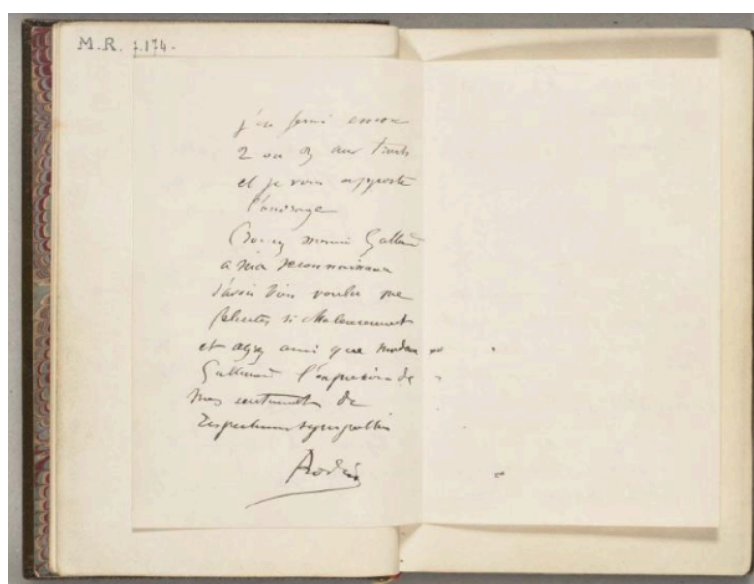 M.R. 7.174.
j'en ferai encore
2 ou 3 aux traits
et je vous apporte
l'ouvrage
Croyez monsieur Gallimard
à ma reconnaissance
d'avoir bien voulu me
feliciter si chaleureusement
et agréez ainsi que madame
Gallimard l'expression de
mes sentiments de
respectueuse sympathie
Rodin